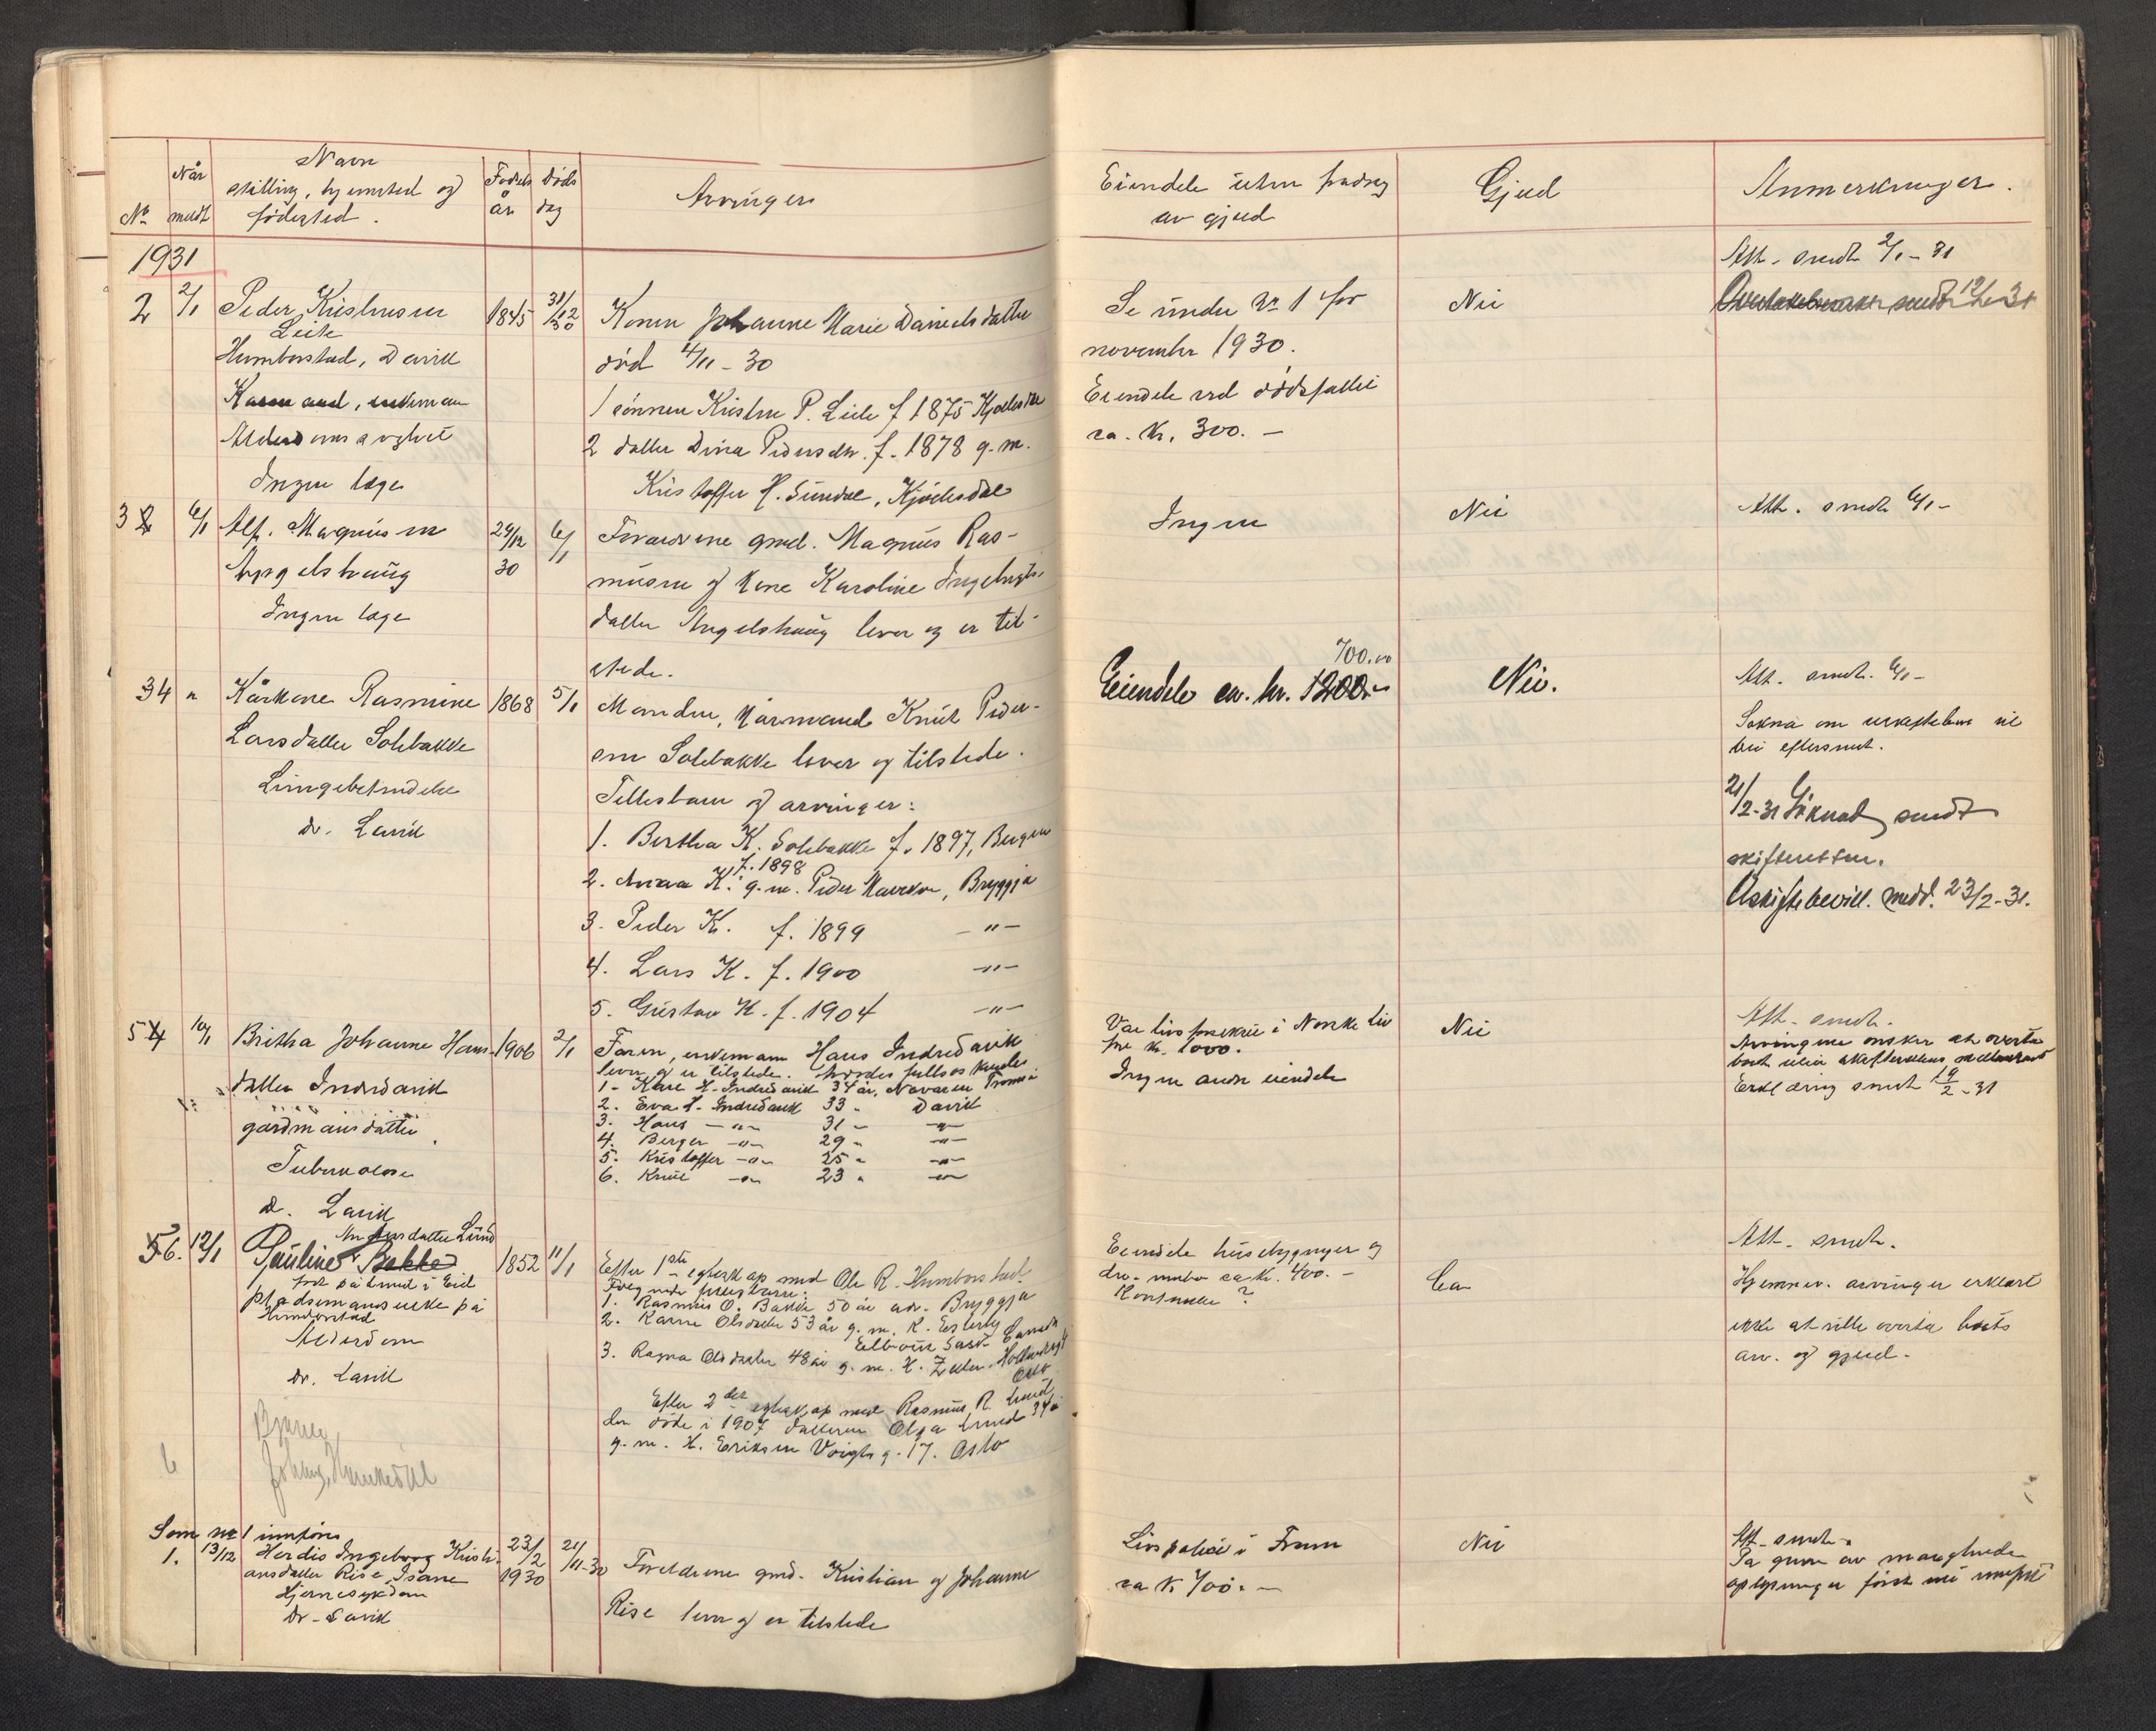 No
Når
meldt
Navn
stilling, hjemsted og
fødested.
Fødsels
år
Døds
dag
Arvinger
Eiendele uten fradrag
av gjeld
Gjeld
Anmerkninger.
1931
2 2/1 Peder Kristensen 1845 31/12 30
Leite
Humborstad, Davik
enkeman
Alderdoms
Ingen læge
Konen Johanne Marie Danielsdatter
død 4/11-30
1 sønnen Kristen P. Leite f 1875
2 datter Dina Pedersdtr. f. 1878 g.m.
Kristoffer H. Sundal, Kjølesdal
Se under nr 1 for
november 1930.
Eiendele ved dødsfallet
ca. kr. 300.-
Nei
Att. sendt 2/1-31
sendt 12/1-31
3 2 6/1 Alf. Magnusen 24/12 30 6/1
Ingen læge
Forældrene gmd. Magnus Ras-
musen og kone Karoline Ingebrigts-
datter Angelshaug lever og er til-
stede.
Ingen
Nei
Att. sendt 6/1-
34 " Kårkone Rasmine 1868 5/1
Larsdatter Solebakke
Lungebetændelse
dr. Lavik
Manden, kårmand Knut Peder-
sen Solebakke lever og tilstede.
Fellesbarn og arvinger:
1. Bertha K. Solebakke f. 1897, Bergen
f. 1898
2. Anna K. g.m. Peder Maurstad, Bryggja
3. Peder K. f. 1899 -"-
4. Lars K. f. 1900 -"-
5. Gustav K. f. 1904 -"-
700.00
Eiendele ca. kr. 1200.-
Nei.
Att. sendt. 6/1-
Søknad om uskiftebev. vil
bli eftersendt.
21/2-31 Søknad sendt
skifteretten.
Uskiftebevill. medd. 23/2-31.
5 4 10/1 Britha Johanne Hans- 1906 2/1
datter Indredavik
gardmansdatter
Tuberkulose
d. Lavik
Faren, enkemann Hans Indredavik
lever og er tilstede.
1- Karl H. Indredavik 34 år, Tromsø
2. Eva H. Indredavik 33 - Davik
3. Hans -"- 31 - -"-
4. Berger -"- 29 - -"-
5. Kristoffer -"- 25 - -"-
6. Knut -"- 23 - -"-
Var livsforsikret i Norske Liv
for kr. 1000.
Ingen andre eiendele
Nei
Att. sendt.
Arvingene ønsker at overta
boet uten skifterettens mellomkomst
Erklæring sendt 19/2-31
56. 12/1 Pauline Bakke 1852 11/1
Andersdatter Lund
født på Lund i Eid
pladsemansenke på
Humborstad
Alderdom
dr. Lavik
Efter 1ste egteskap med Ole R. Humborstad.
1. Rasmus O. Bakke 50 år adr. Bryggja
2. Karen Olsdatter 53 år g.m. K. Esterby
Sask. Canada
3. Ragna Olsdatter 48 år g.m. H.
Oslo
Efter 2det egteskap med Rasmus R. Lund
den døde i 1907 datteren Olga Lund 34 år
g.m. H. Eriksen Voigts g. 17. Oslo
Eiendele husebygninger og
div. innbo ca kr. 400.-
Kontanter?
Ca
Att. sendt.
Hjemmev. arvinger erklært
ikke at ville overta boets
arv. og gjeld.
6
Som nr 1 innføres
1. 13/12 Herdis Ingeborg Kristi- 23/2 1930 21/11-30
ansdatter Rise, Isane
Hjernesykdom
Dr. Lavik
Foreldrene gmd. Kristian og Johanne
Rise lever og er tilstede
Livspolise i Fram
ca kr 700.-
Nei
Att. sendt.
På grunn av manglende
oplysninger først nu innført